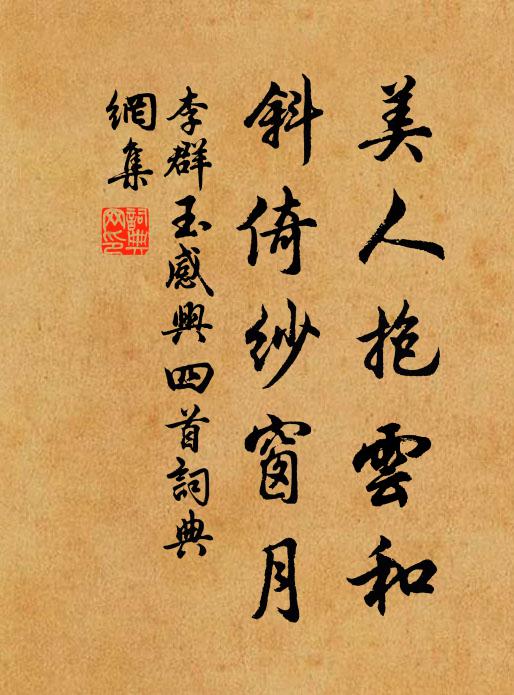 美人抱雲和
斜倚紗窗月
李群玉感興四首詞典
網集
詞典網印